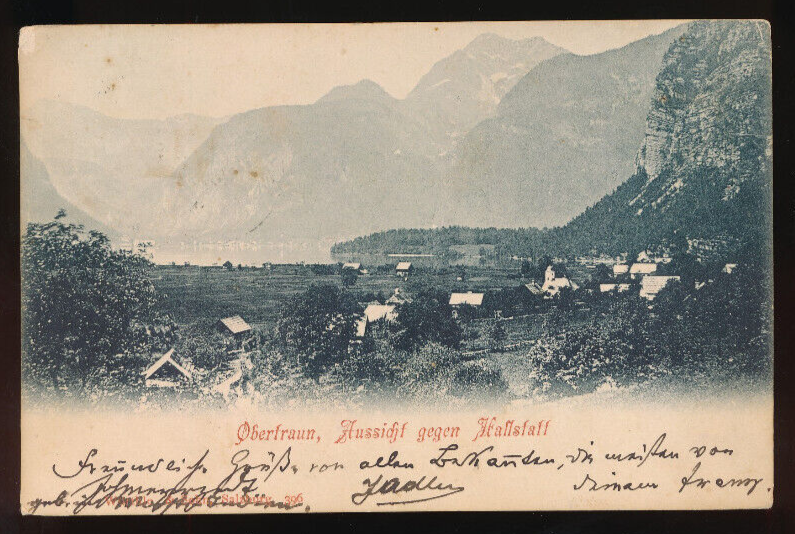 Obertraun, Aussicht gegen Hallstatt
Freundliche Grüße von allen Bekannten, die meisten von
deinem Franz.
Salzburg. 396